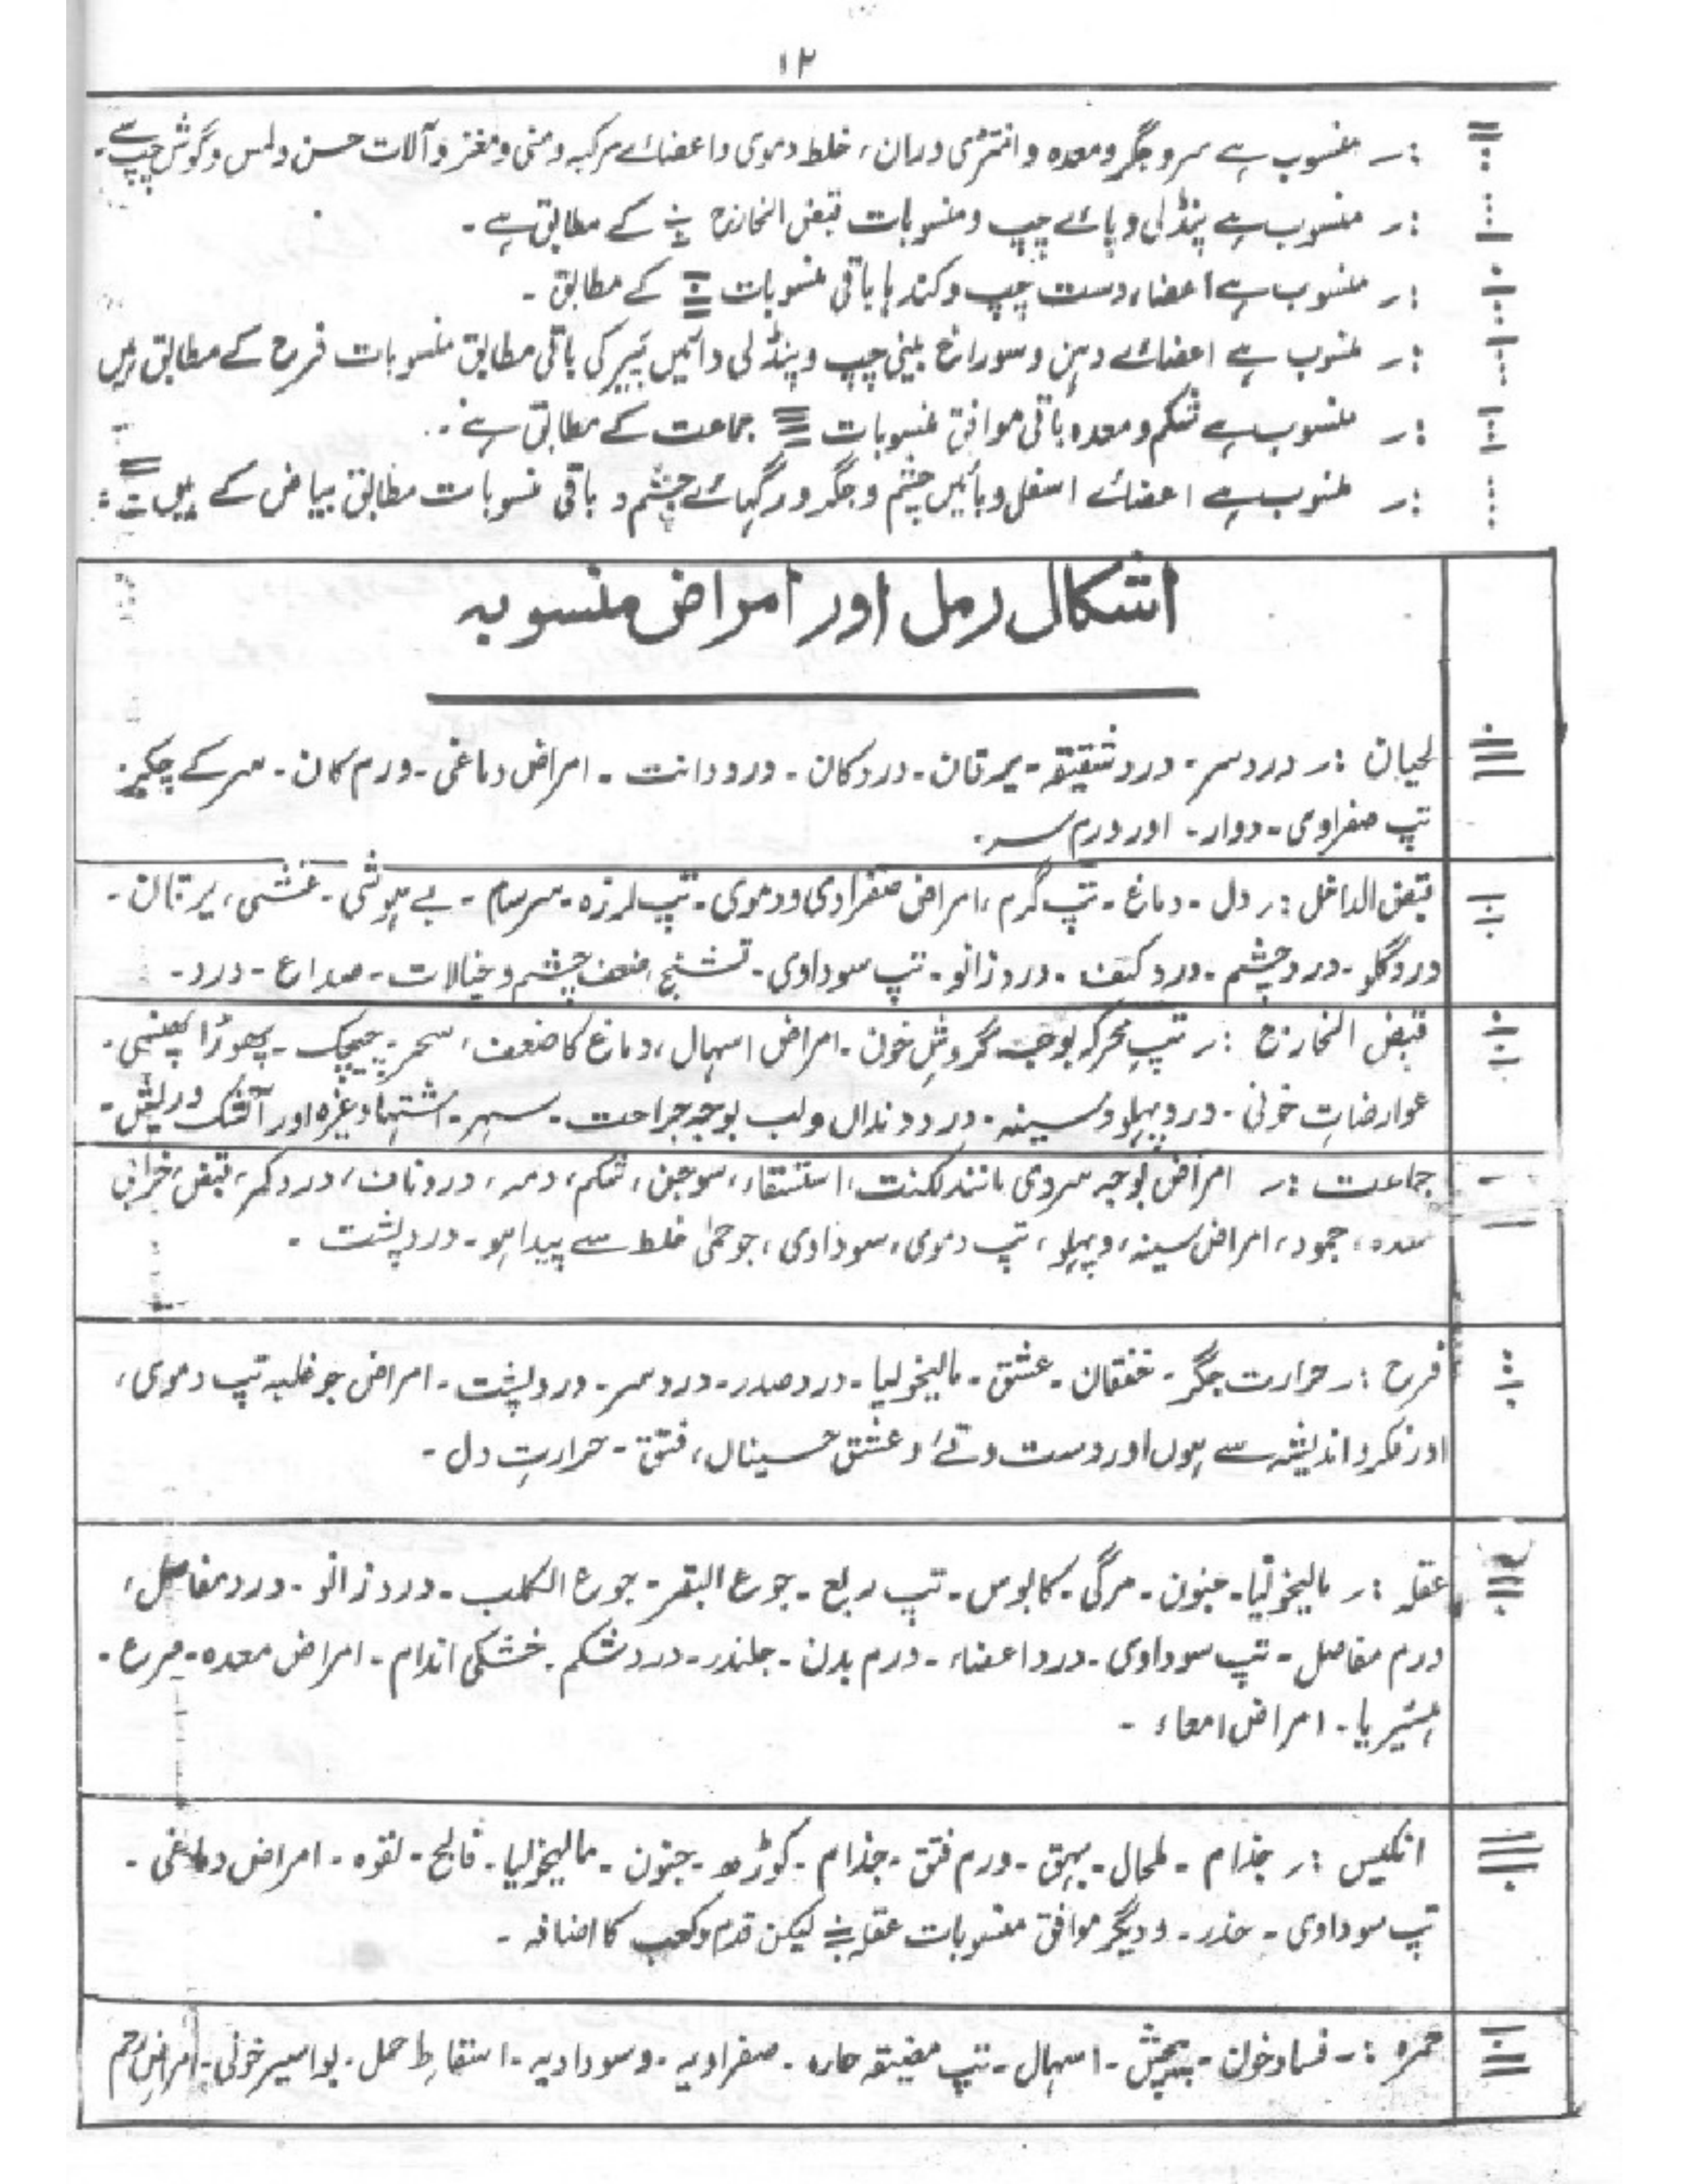 ۱۲
:۔ منسوب ہے سر و جگر و معدہ و انتڑی و ران، خلط دموی و اعضائے مرکبہ و منی و مغز و آلات حسن و لمس و گوش چپ سے۔
:۔ منسوب ہے پنڈلی و پائے چپ و منسوبات قبض الخارج کے مطابق ہے۔
:۔ منسوب ہے اعضاء دست چپ و کندہا باقی منسوبات کے مطابق۔
:۔ منسوب ہے اعضائے دہن و سوراخ بینی چپ و پنڈلی دائیں پیر کی باقی مطابق منسوبات فرح کے مطابق ہیں
:۔ منسوب ہے شکم و معدہ باقی موافق منسوبات جماعت کے مطابق ہے۔
:۔ منسوب ہے اعضائے اسفل و بائیں چشم و جگر و رگہائے چشم و باقی منسوبات مطابق بیاض کے ہیں
اشکال رمل اور امراض منسوبہ
لحیان :۔ درد سر۔ درد شقیقہ۔ یرقان۔ درد کان۔ درد دانت۔ امراض دماغی۔ ورم کان۔ سر کے چکر۔
تپ صفراوی۔ دوار۔ اور ورم سر۔
قبض الداخل :۔ دل۔ دماغ۔ تپ گرم، امراض صفراوی و دموی۔ تپ لرزہ۔ سرسام۔ بے ہوشی۔ غشی، یرقان۔
درد گلو۔ درد چشم۔ درد کتف۔ درد زانو۔ تپ سوداوی۔ تشنج، ضعف چشم و خیالات۔ صداع۔ درد۔
قبض الخارج :۔ تپِ محرکہ بوجہ گردشِ خون۔ امراض اسہال، دماغ کا ضعف، سحر۔ چیچک۔ پھوڑا پھنسی۔
عوارضاتِ خونی۔ درد پہلو و سینہ۔ درد دنداں و لب بوجہ جراحت۔ سہر۔ اشتہا وغیرہ اور آتشک و ریش۔
جماعت :۔ امراض بوجہ سردی مانند لکنت، استسقاء، سوجن، شکم، دمہ، درد ناف، درد کمر، قبض، خرابی
معدہ، جمود، امراض سینہ، و پہلو، تپ دموی، سوداوی، جو حمیٰ خلط سے پیدا ہو۔ درد پشت۔
فرح :۔ حرارت جگر۔ خفقان۔ عشق۔ مالیخولیا۔ درد صدر۔ درد سر۔ درد پشت۔ امراض جو غلبہ تپ دموی،
اور فکر و اندیشہ سے ہوں اور دست و قے و عشق حسیناں، فتق۔ حرارتِ دل۔
عقلہ :۔ مالیخولیا۔ جنون۔ مرگی۔ کابوس۔ تپ ربع۔ جوع البقر۔ جوع الکلب۔ درد زانو۔ درد مفاصل،
ورم مفاصل۔ تپ سوداوی۔ درد اعضاء۔ ورم بدن۔ جلندر۔ درد شکم۔ خشکی اندام۔ امراض معدہ۔ صرع۔
ہسٹیریا۔ امراض امعاء۔
انکیس :۔ جذام۔ طحال۔ بہق۔ ورم فتق۔ جذام۔ کوڑھ۔ جنون۔ مالیخولیا۔ فالج۔ لقوہ۔ امراض دماغی۔
تپ سوداوی۔ خدر۔ و دیگر موافق منسوبات عقلہ لیکن قدم و کعب کا اضافہ۔
حمرہ :۔ فساد خون۔ پیچش۔ اسہال۔ تپ حارہ۔ صفراویہ۔ و سوداویہ۔ اسقاطِ حمل۔ بواسیر خونی۔ امراضِ رحم